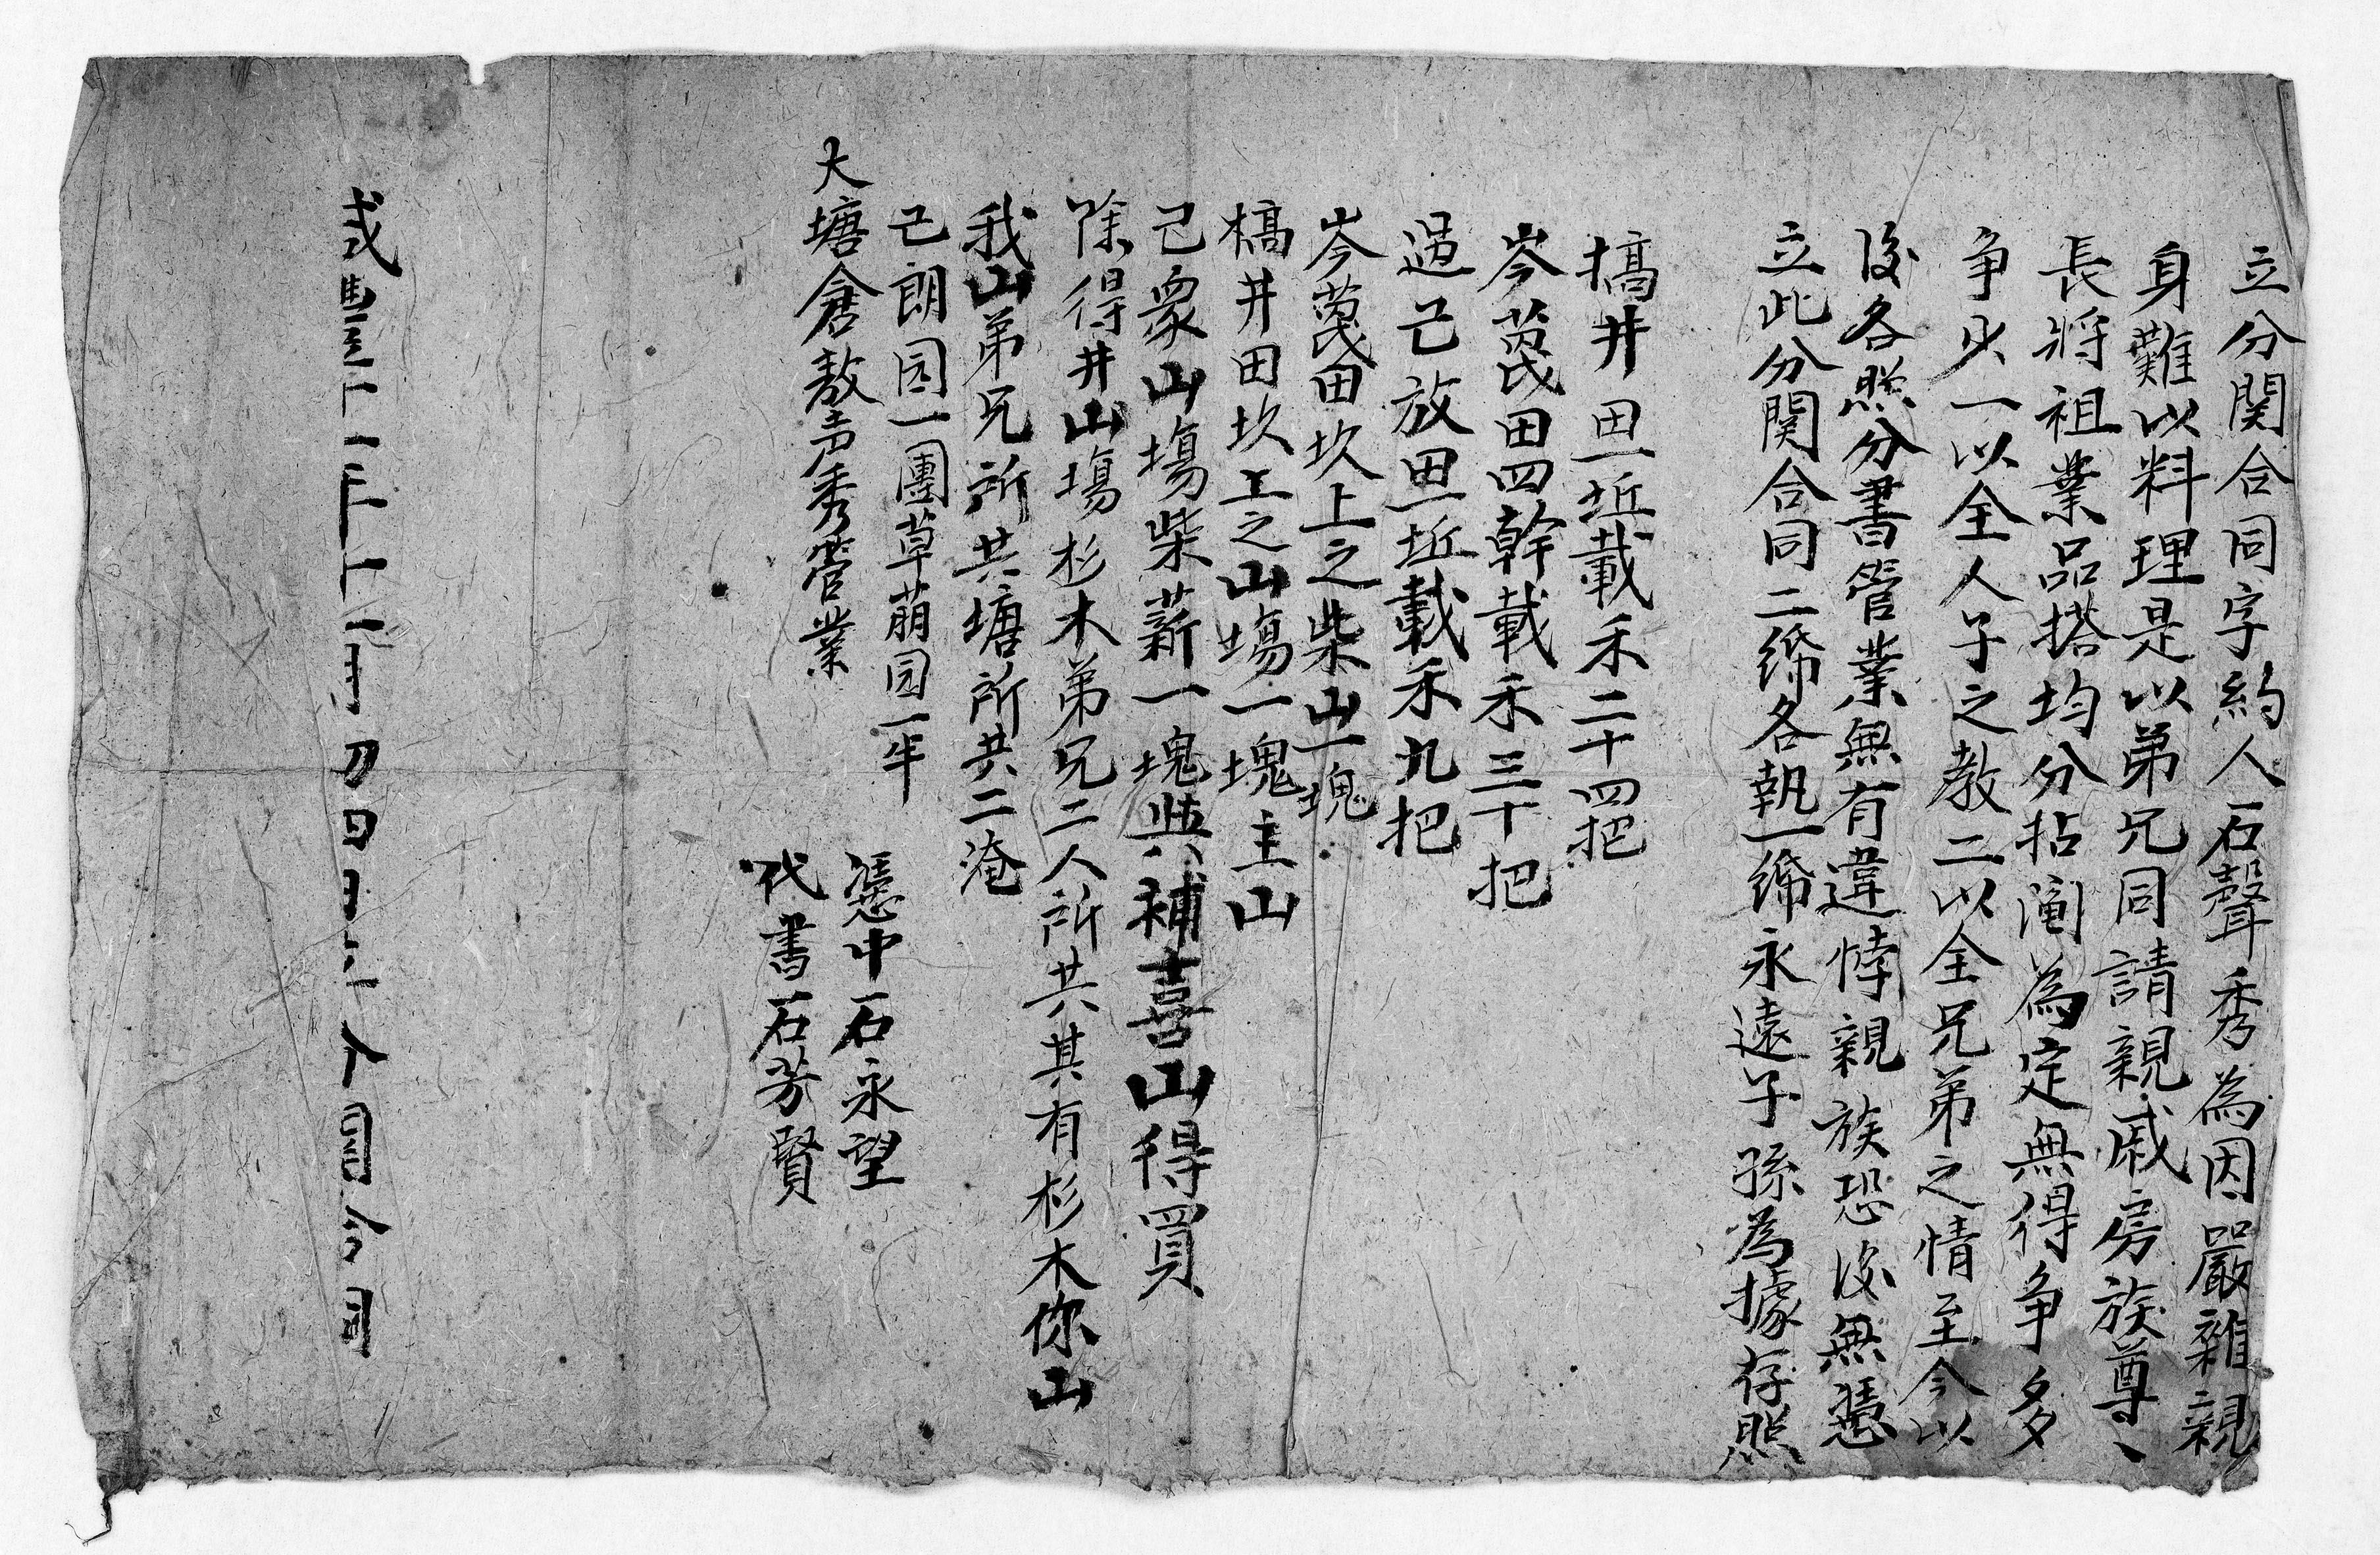 立分関合同字約人石聲秀為因嚴雜親
身難以料理是以弟兄同請親戚房族尊、
長將祖業品搭均分拈阄為定無得争多
争少一以全人子之教二以全兄弟之情至今以
後各照分書管業無有違悖親族恐後無憑
立此分関合同二締各執一締永遠子孫為據存照
槁井田一坵載禾二十四把
岑莨田四幹載禾三十把
過已放田一坵載禾九把
岑莨田坎上之柴山一塊
槁井田坎上之山塲一塊主山
己眾山塲柴薪一塊與補喜山得買
除得井山塲杉木弟兄二人所共其有杉木你山
我山弟兄所共塘所共二淹
己朗园一團草萠园一半
大塘倉敖声秀管業
憑中石永望
代書石芳賢